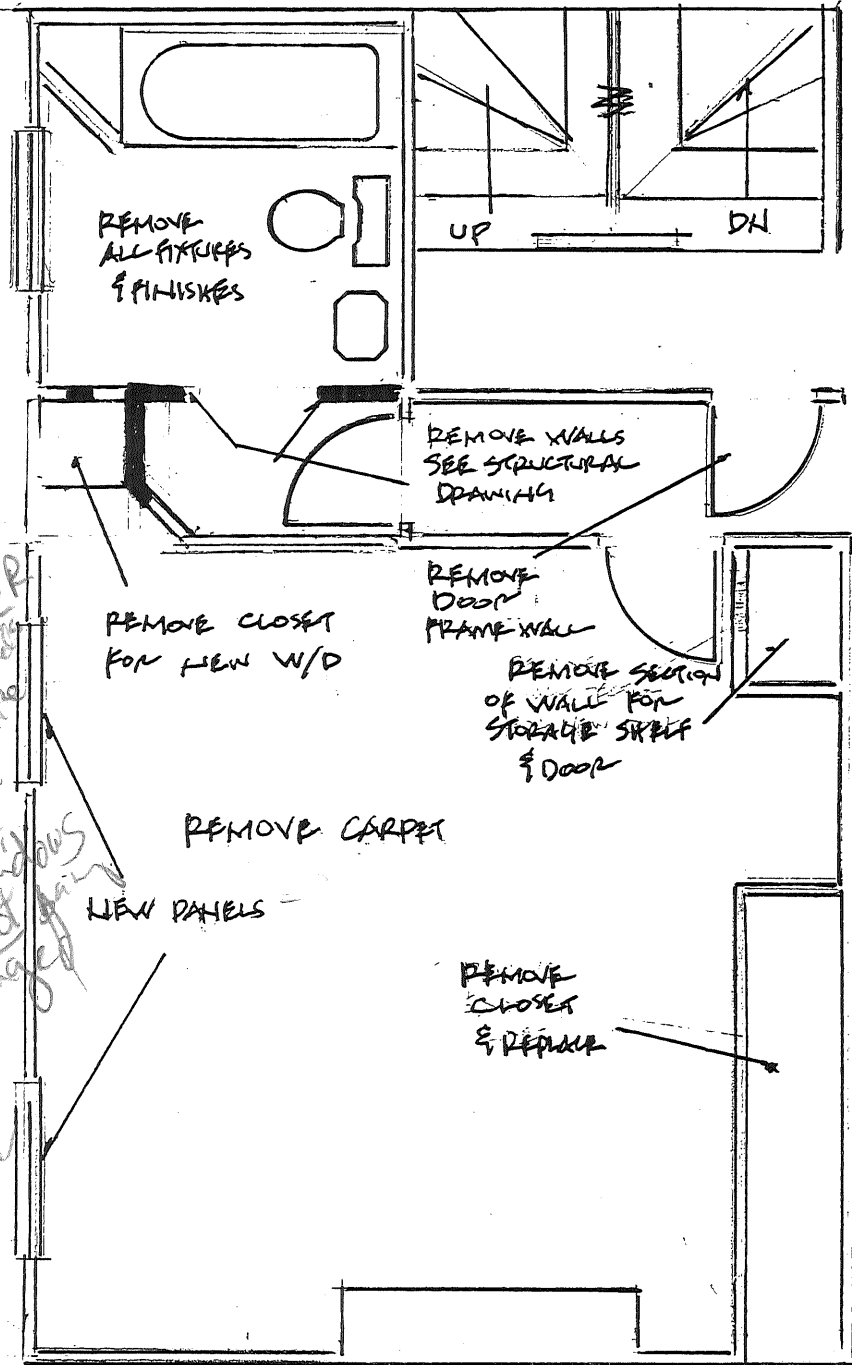 REMOVE
ALL FIXTURES
& FINISHES
UP
DN
REMOVE WALLS
SEE STRUCTURAL
DRAWING
REMOVE
DOOR
FRAME WALL
REMOVE CLOSET
FOR NEW W/D
REMOVE SECTION
OF WALL FOR
STORAGE SHELF
& DOOR
REMOVE CARPET
NEW PANELS
REMOVE
CLOSET
& REPLACE